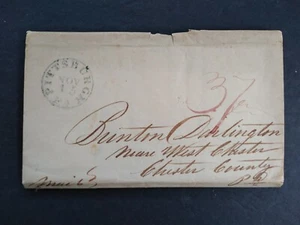 PITTSBURGH
NOV
37
Brinton Darlington
Near West Chester
Chester County
Pa